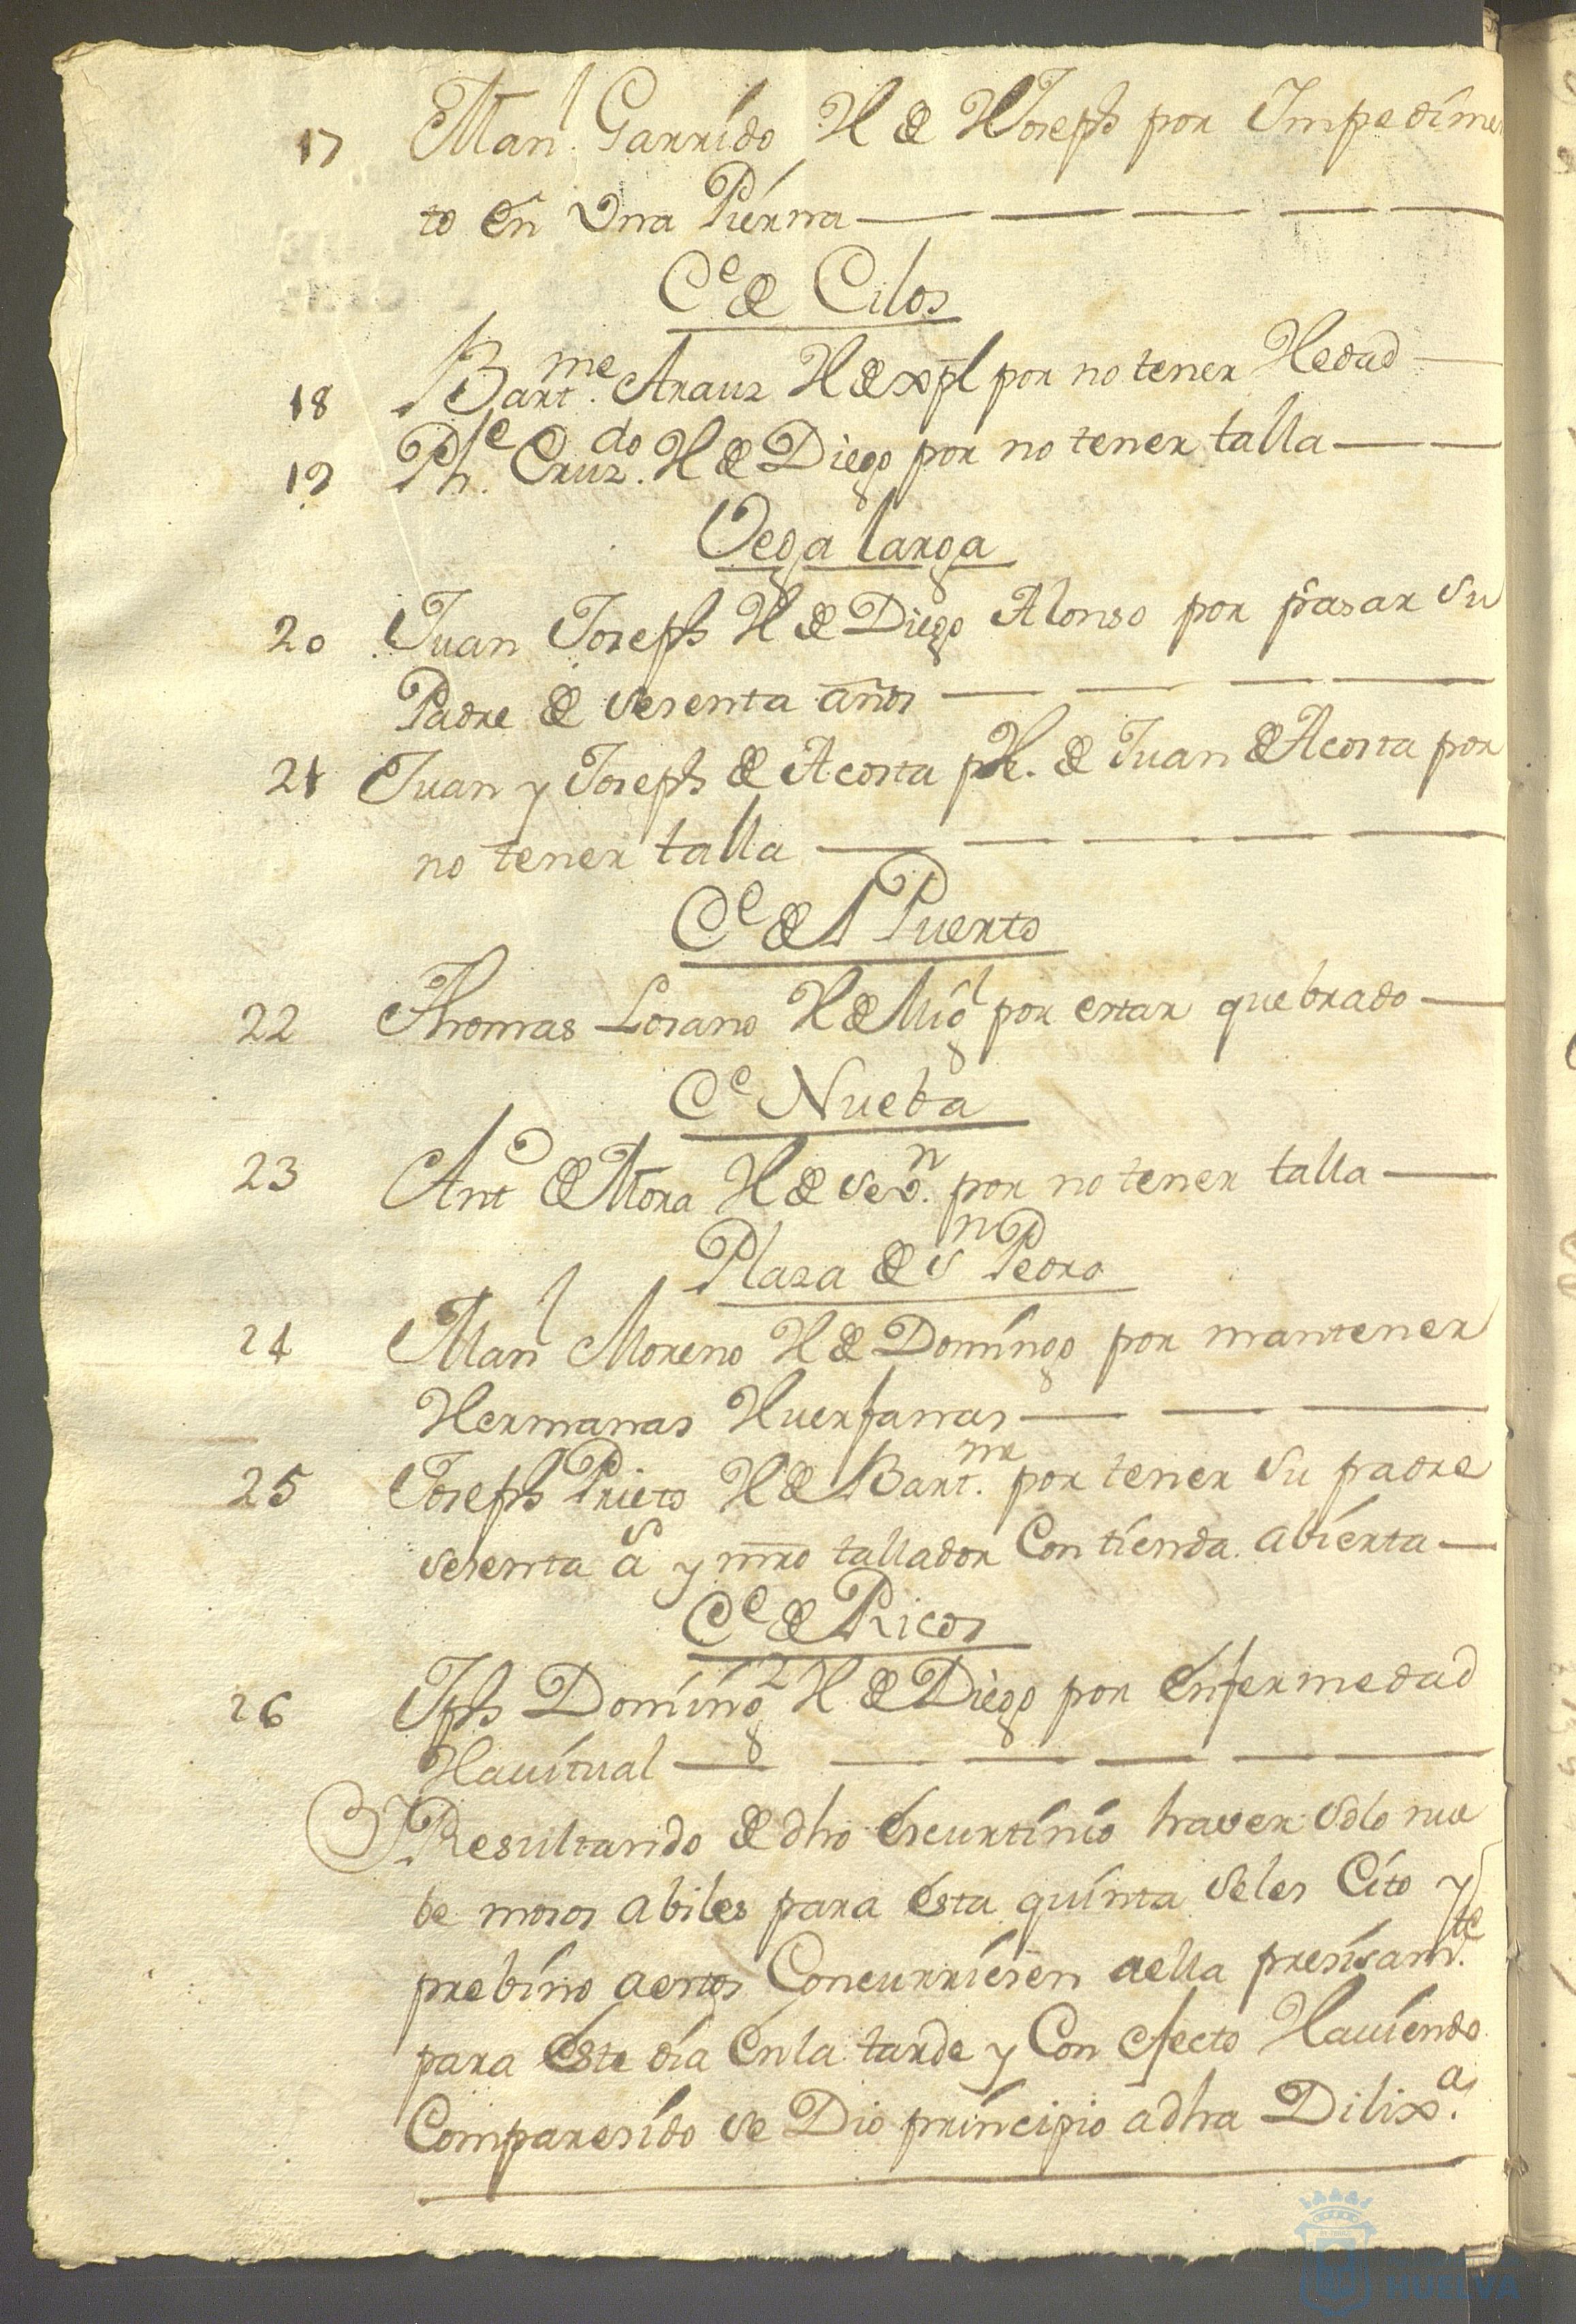 17 Man.l Garrido H de Joseph por Impedimen
to en Una Pierna
C.e de Cilos
18 Bart.me Arauz H de xpl por no tener Hedad
19 Ph.e Cruz.do H de Diego por no tener talla
Vega larga
20 Juan Joseph H de Diego Alonso por pasar su
Padre de sesenta años
21 Juan y Joseph de Acosta de Juan de Acosta por
no tener talla
C.e del Puerto
22 Thomas Losano H de Mig.l por estar quebrado
C.e Nueba
23 Ant.o de Mora H de seb.n por no tener talla
Plaza de S.n Pedro
24 Man.l Moreno H de Domingo por mantener
Hermanas Huerfanas
25 Joseph Prieto H de Bart.me por tener su padre
sesenta a.s y mro tallador Con tienda abierta
C.e de Ricos
26 Jph Doming.z H de Diego por enfermedad
Hauitual
Y Resultando de dho escurtinio haver solo nue
be mosos abiles para esta quinta seles Cito y
prebino aestos Concurriesen aella presisam.te
para este dia enla tarde y Con efecto Hauiendo
Comparesido se Dio principio adha Dilix.a
HUELVA